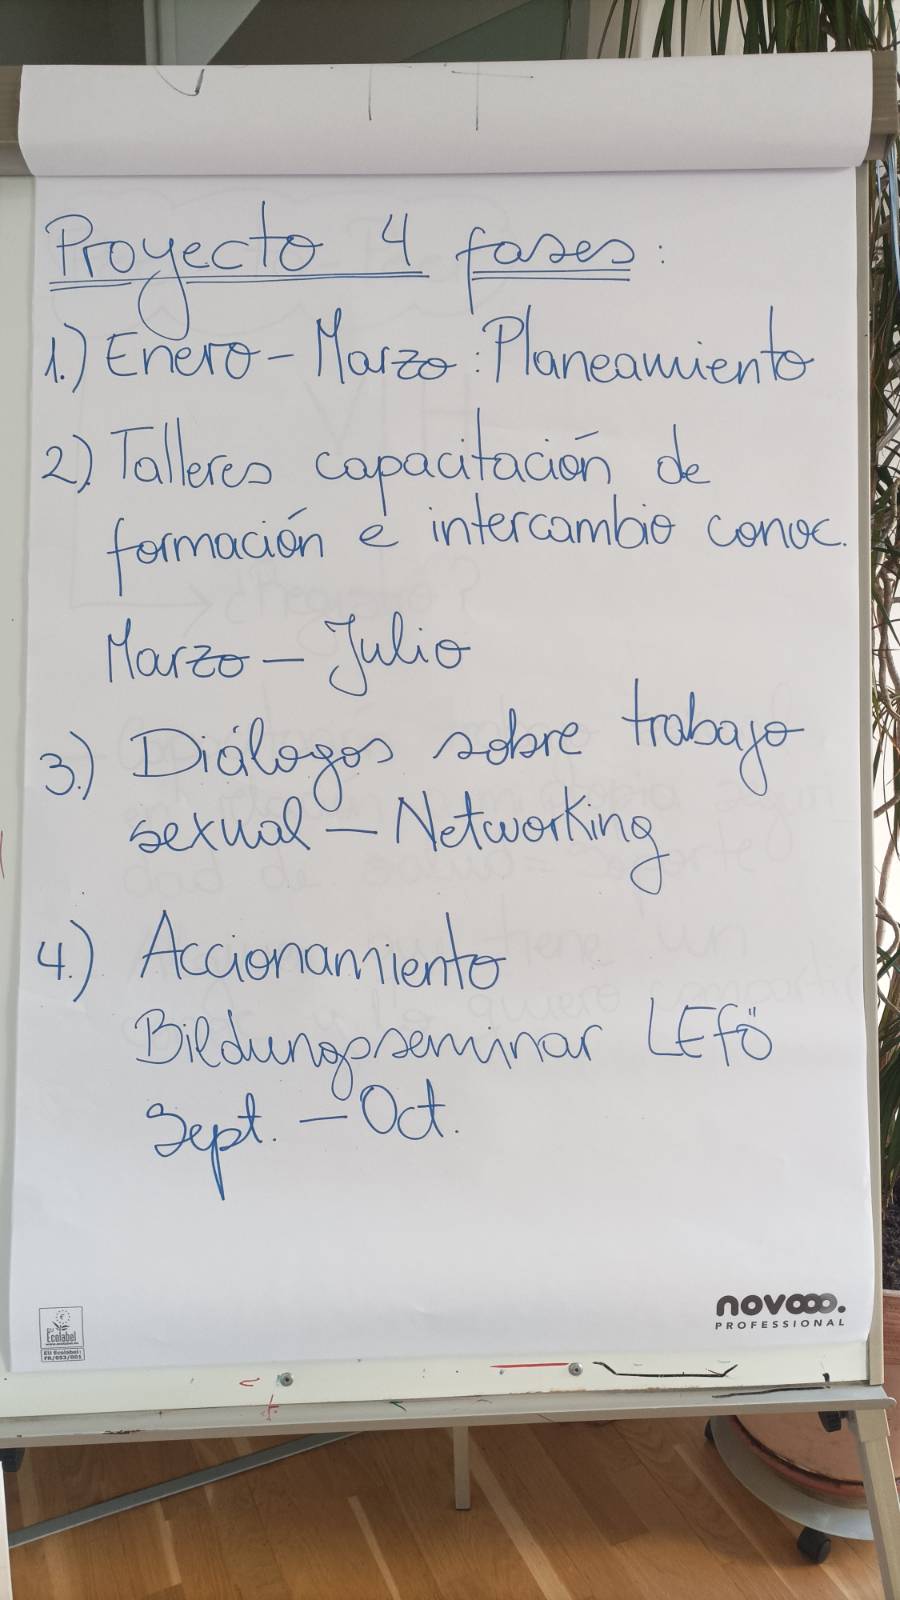 Proyecto 4 fases:
1.) Enero - Marzo: Planeamiento
2.) Talleres capacitación de
formación e intercambio conoc.
Marzo - Julio
3.) Diálogos sobre trabajo
sexual - Networking
4.) Accionamiento
Bildungsseminar LEFÖ
Sept. - Oct.
novooo.
PROFESSIONAL
Ecolabel